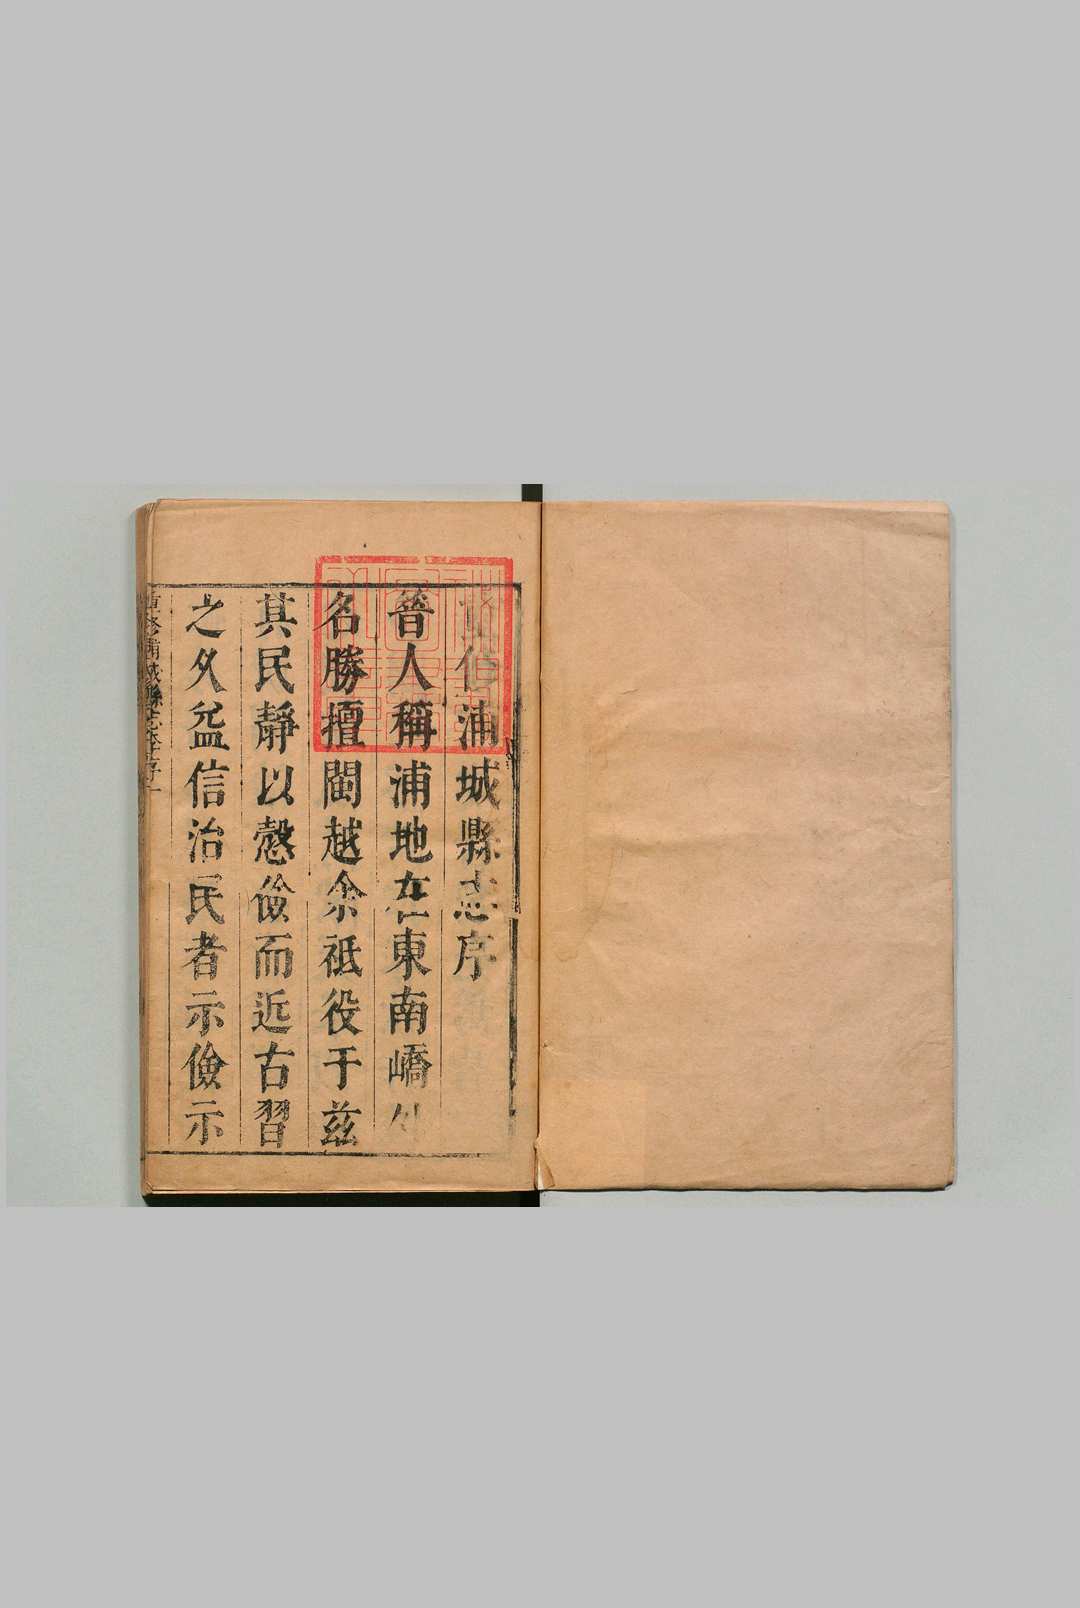 修浦城縣志序
晉人稱浦地在東南嶠外
名勝擅閩越余祗役于兹
其民靜以慤儉而近古習
之久益信治民者示儉示
重修浦城縣志